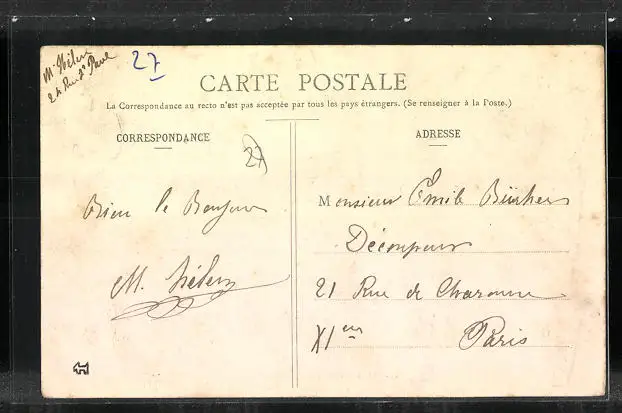 27
24 Rue St Paul
CARTE POSTALE
La Correspondance au recto n'est pas acceptée par tous les pays étrangers. (Se renseigner à la Poste.)
CORRESPONDANCE
ADRESSE
27
Bien le Bonjour
M.
Monsieur Emile
Découpeur
21 Rue de Charonne
XIem Paris